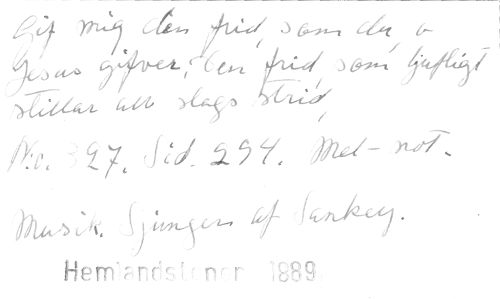 Gif mig den frid, som du, o
Jesus gifver, den frid, som ljufligt
stillar all slags strid,
No. 327. Sid. 294. Mel-not.
Musik. Sjunges af Sankey.
Hemlandstoner 1889